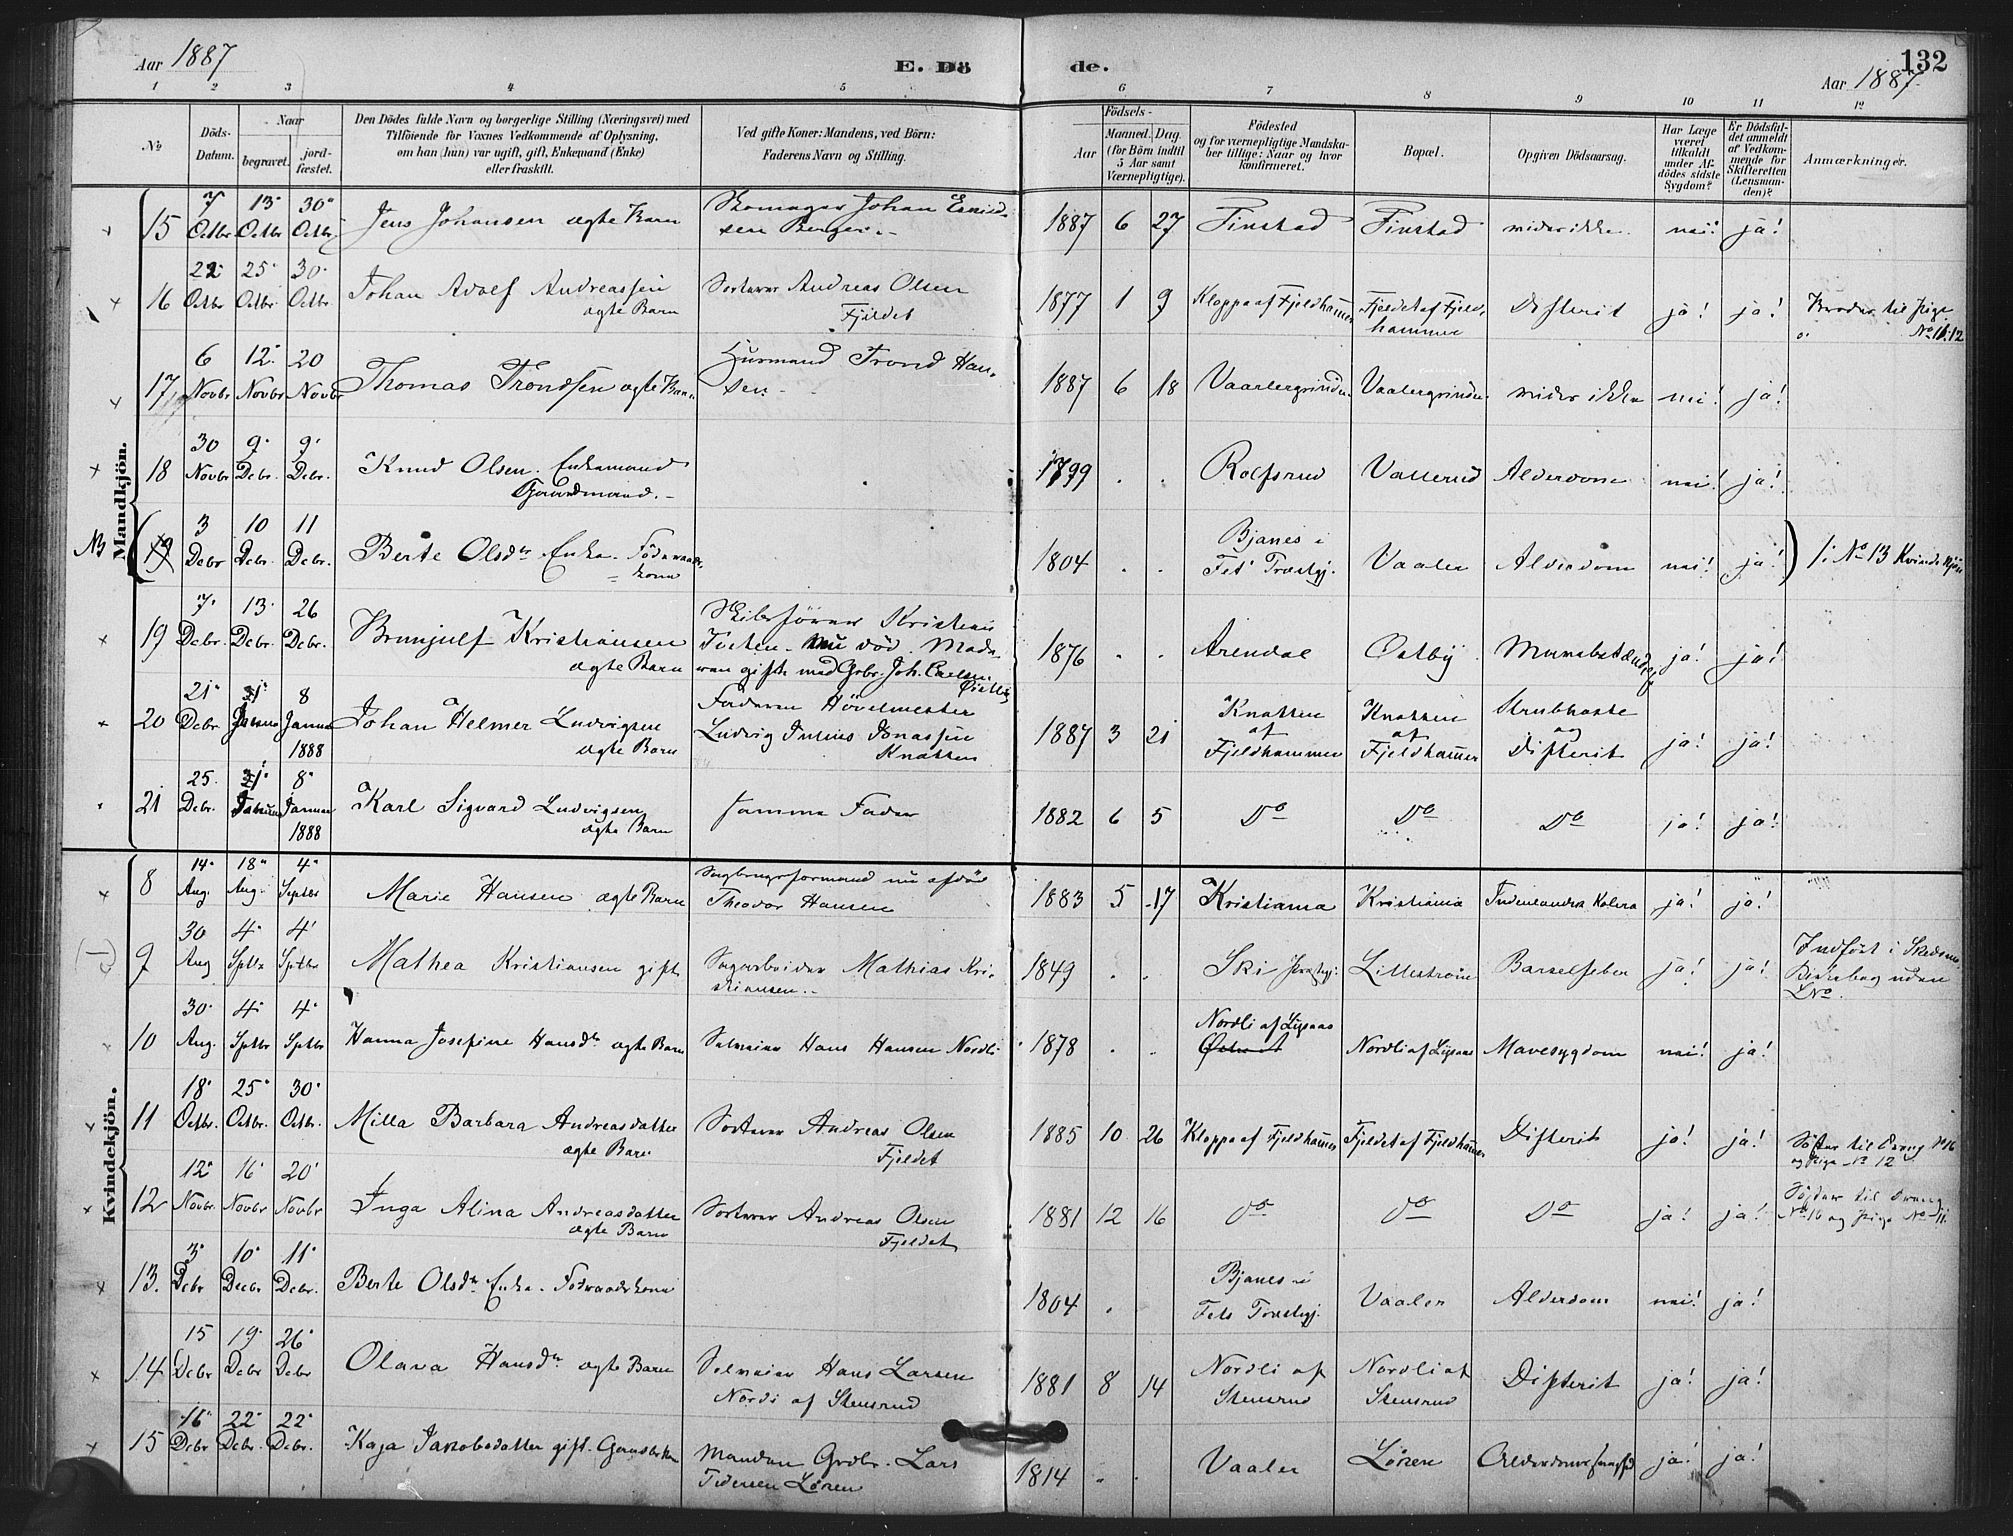 Aar 1887
E. Dö de.
132
Aar 1887.
1 2 3 4 5 6 7 8 9 10 11 12
No
Döds-Datum.
Naar
begravet.
jord-fæstet.
Den Dödes fulde Navn og borgerlige Stilling (Næringsvei) med
Tilföiende for Voxnes Vedkommende af Oplysning,
om han (hun) var ugift, gift, Enkemand (Enke)
eller fraskilt.
Ved gifte Koner: Mandens, ved Börn:
Faderens Navn og Stilling.
Födsels-
Aar
Maaned. Dag.
(for Börn indtil
5 Aar samt
Værnepligtige).
Födested
og for værnepligtige Mandska-
ber tillige: Naar og hvor
konfirmeret.
Bopæl.
Opgiven Dödsaarsag.
Har Læge
været
tilkaldt
under Af-
dödes sidste
Sygdom?
Er Dödsfal-
det anmeldt
af Vedkom-
mende for
Skifteretten
(Lensman-
den)?
Anmærkninger.
Mandkjön.
15 7 Octbr. 13 Octbr 30 Octbr. Jens Johansen ægte Barn Skomager Johan
sen Berger 1887 6 27 Finstad Finstad vides ikke. nei! ja!
16 22 Octbr 25 Octbr. 30 Octbr. Johan Adolf Andreassen
ægte Barn Sorterer Andreas Olsen
Fjeldet 1877 1 9 Kloppa af Fjeldhamer Fjeldet af Fjeld-
hammer Difterit ja! ja! Broder til Pige
No 11. 12
17 6 Novbr 12 Novbr 20 Novbr Thomas Trondsen ægte Barn Husmand Trond Han-
sen 1887 6 18 Vaalergrinden Vaalergrinden vides ikke nei! ja!
18 30 Novbr 9 Debr. 9 Debr. Knud Olsen. Enkemand
Gaardmand. 1799 . . Rolfsrud Vallerud Alderdom nei! ja!
NB (19 3 Debr 10 Debr. 11 Debr. Berte Olsdtr Enke. Föderaads-
kone 1804 . . Bjanes i
Fet Præstgj. Vaaler Alderdom nei! ja! ) No 13 Kvindekjön
19 7 Debr. 13 Debr. 26 Debr. Brunjulf Kristiansen
ægte Barn Skibsförer Kristian
nu död. Mode-
ren gift med Grbr. Joh.
1876 . . Arendal Östby ja! ja!
20 21 Debr 8 Januar
1888 Johan Helmer Ludvigsen
ægte Barn Faderen Hövelmester
Ludvig Julius Jonassen
Knatten 1887 3 21 Knatten
af
Fjeldhammer Knatten
af
Fjeldhamer Strubhoste
og
Difterit ja! ja!
21 25 Debr. 8 Januar
1888 Karl Sigvard Ludvigsen
ægte Barn samme Fader 1882 6 5 Do Do Do ja! ja!
Kvindekjön.
8 14 Aug. 18 Aug. 4 Septbr Marie Hansen ægte Barn Sagbrugsformand nu afdöd
Theodor Hansen 1883 5 17 Kristiania Kristiania Indenlandsk Kolera ja! ja!
9 30 Aug 4 Sptbr 4 Sptbr Mathea Kristiansen gift Sagarbeider Mathias Kri-
stiansen 1849 . . Ski Præstgj. Lilleström Barselfeber ja! ja! Indfört i Skedsmo
Kirkebog uden
LNo.
10 30 Aug. 4 Sptbr 4 Sptbr Hanna Josefine Hansdtr ægte Barn Selveier Hans Hansen Nordli 1878 . . Nordli af Ligaas
Nordli af Ligaas Mavesygdom nei! ja!
11 18 Octbr. 25 Octbr. 30 Octbr. Milla Barbara Andreasdatter
ægte Barn Sorterer Andreas Olsen
Fjeldet 1885 10 26 Kloppa af Fjeldhamer Fjeldet af Fjeldhamer Difterit ja! ja! Söster til Dreng No 16
og Pige No 12
12 12 Novbr. 16 Novbr 20 Novbr Inga Alina Andreasdatter
ægte Barn Sorterer Andreas Olsen
Fjeldet 1881 12 16 Do Do Do ja! ja! Söster til Dreng
No 16 og Pige No 11.
13. 3 Debr 10 Decbr 11 Debr. Berte Olsdtr Enke. Föderaadskone 1804 . . Bjanes i
Fets Præstgj. Vaaler Alderdom nei! ja!
14 15 Debr 19 Debr 26 Debr Olava Hansdtr ægte Barn Selveier Hans Larsen
Nordli af Stensrud 1881 8 14 Nordli af
Stensrud Nordli af
Stensrud Difterit ja! ja!
15 16 Debr 22 Debr. 22 Debr. Kaja Jakobsdatter gift. Manden Grdbr. Lars
Pedersen Lören 1814 . . Vaaler Lören ja! ja!